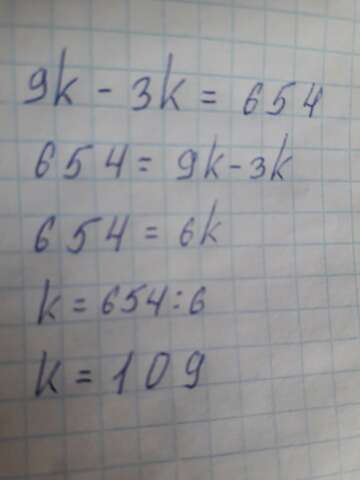 9k - 3k = 654
654 = 9k - 3k
654 = 6k
k = 654 : 6
k = 109